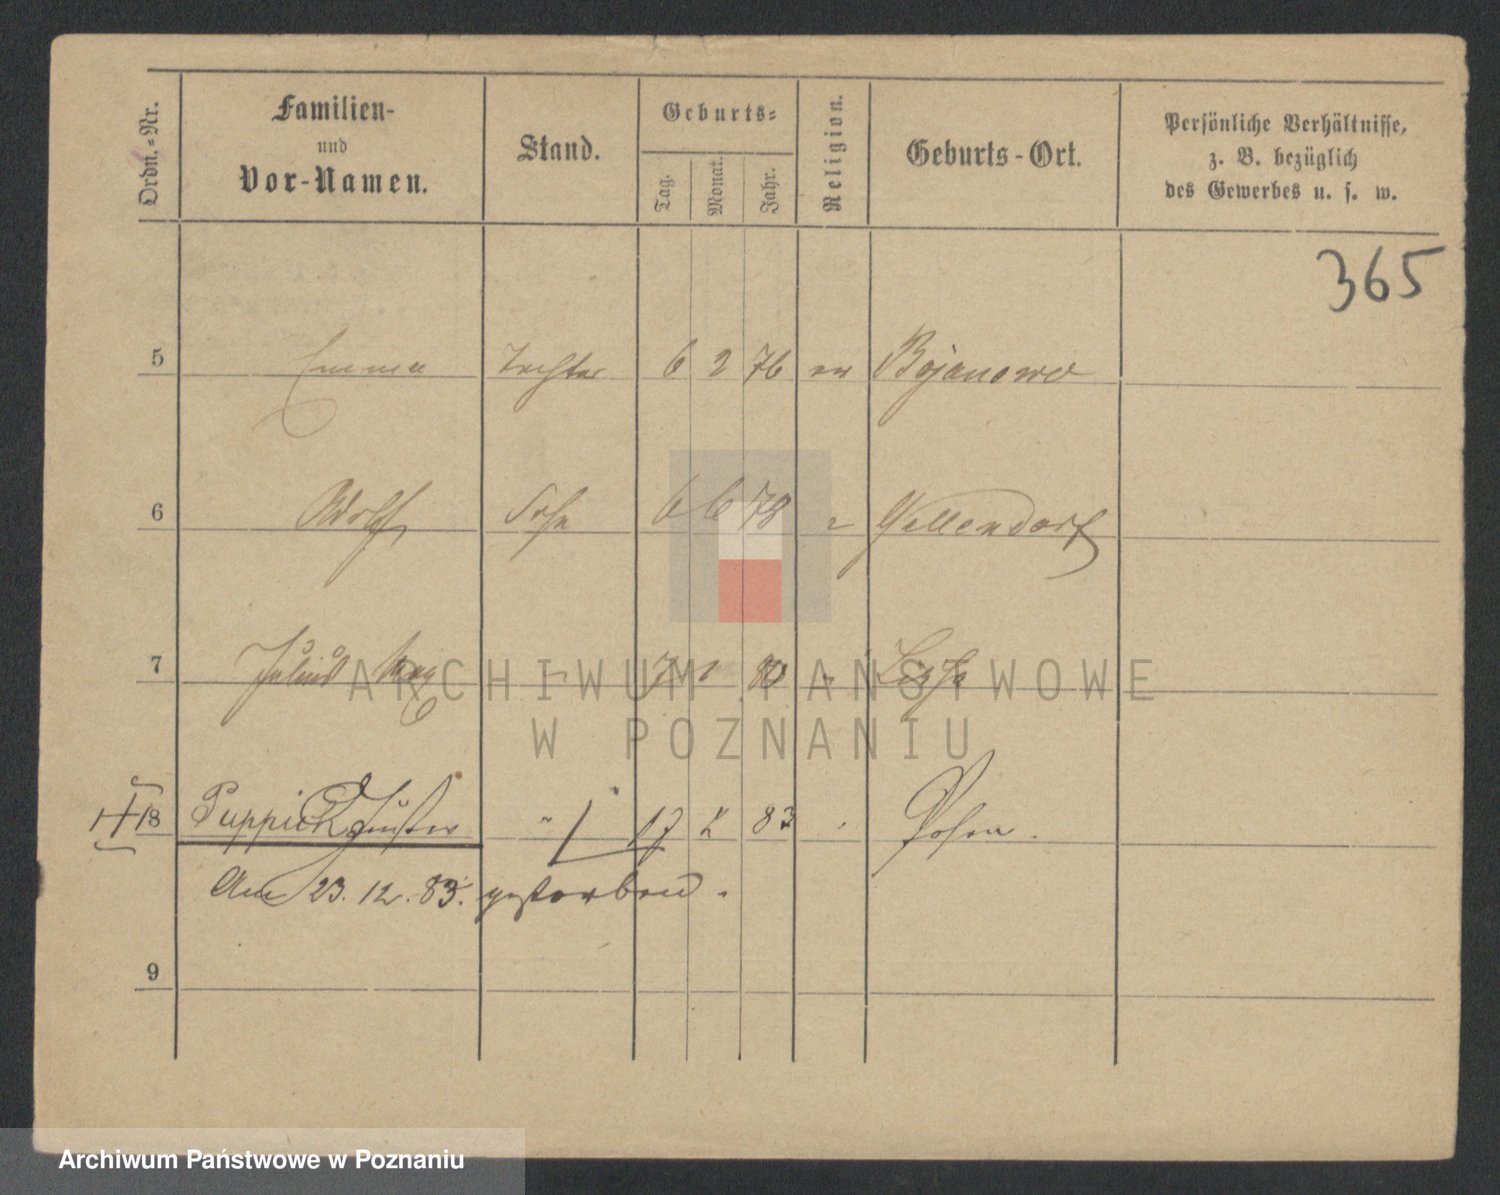 Ordn.-Nr.
Familien-
und
Vor-Namen.
Stand.
Geburts-
Tag.
Monat.
Jahr.
Religion.
Geburts-Ort.
Persönliche Verhältnisse,
z. B. bezüglich
des Gewerbes u. s. w.
365
5 Emma Tochter 6 2 76 ev Bojanowo
6 Adolf Sohn 6 6 78 " Gellendorf
7 Julius Max " 7 1 80 " Lissa
ARCHIWUM PAŃSTWOWE
W POZNANIU
8 Puppich Gustav " 17 2 83 " Posen.
Am 23. 12. 83. gestorben.
9
Archiwum Państwowe w Poznaniu